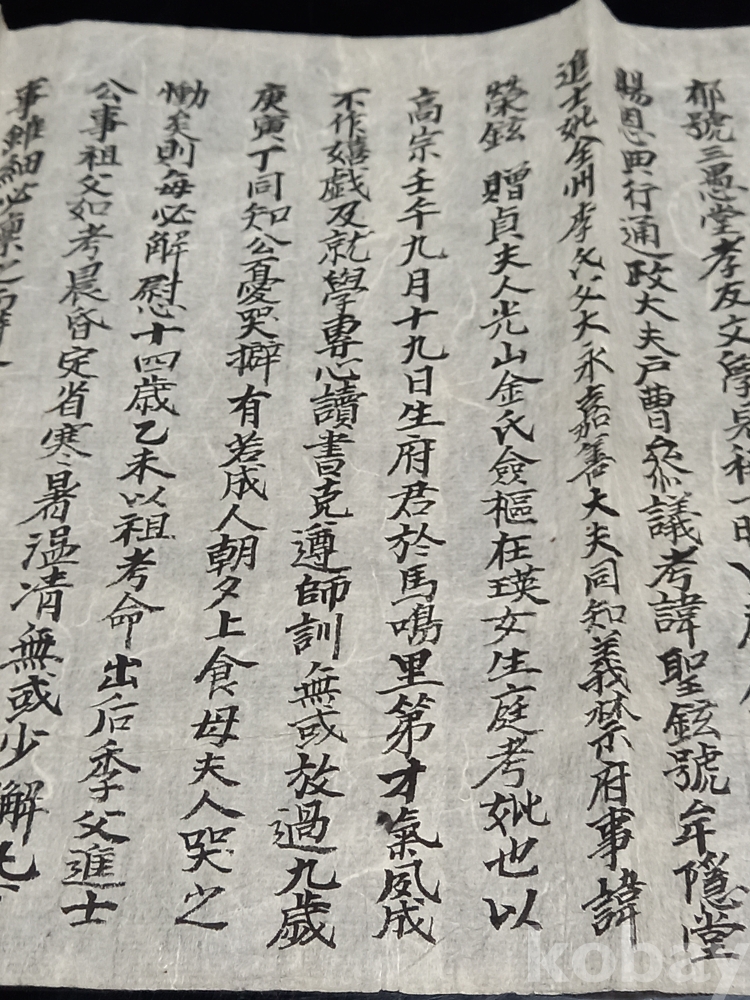 郁號三愚堂孝友文學
賜恩典行通政大夫戶曹參議考諱聖鉉號牟隱堂
進士妣全州李氏父大永嘉善大夫同知義禁府事諱
榮鉉贈貞夫人光山金氏僉樞在瑛女生庭考妣也以
高宗壬午九月十九日生府君於馬鳴里第才氣夙成
不作嬉戲及就學專心讀書克遵師訓無或放過九歲
庚寅丁同知公憂哭擗有若成人朝夕上食母夫人哭之
慟矣則每必解慰十四歲乙未以祖考命出后季父進士
公事祖父如考晨昏定省寒暑溫凊無或少解
事雖細必稟之而
kobay